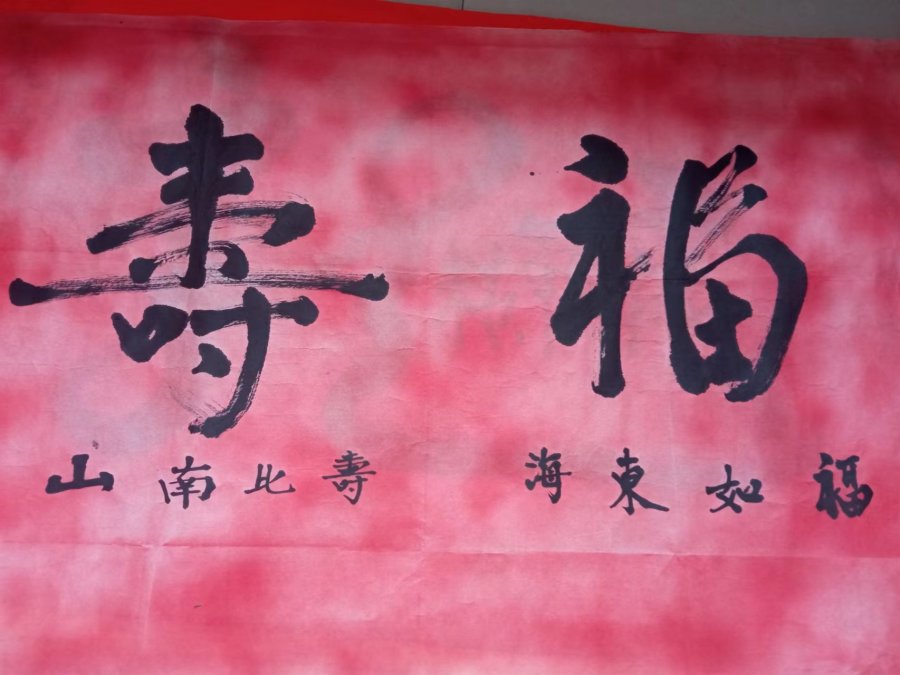 福壽
福如東海
壽比南山